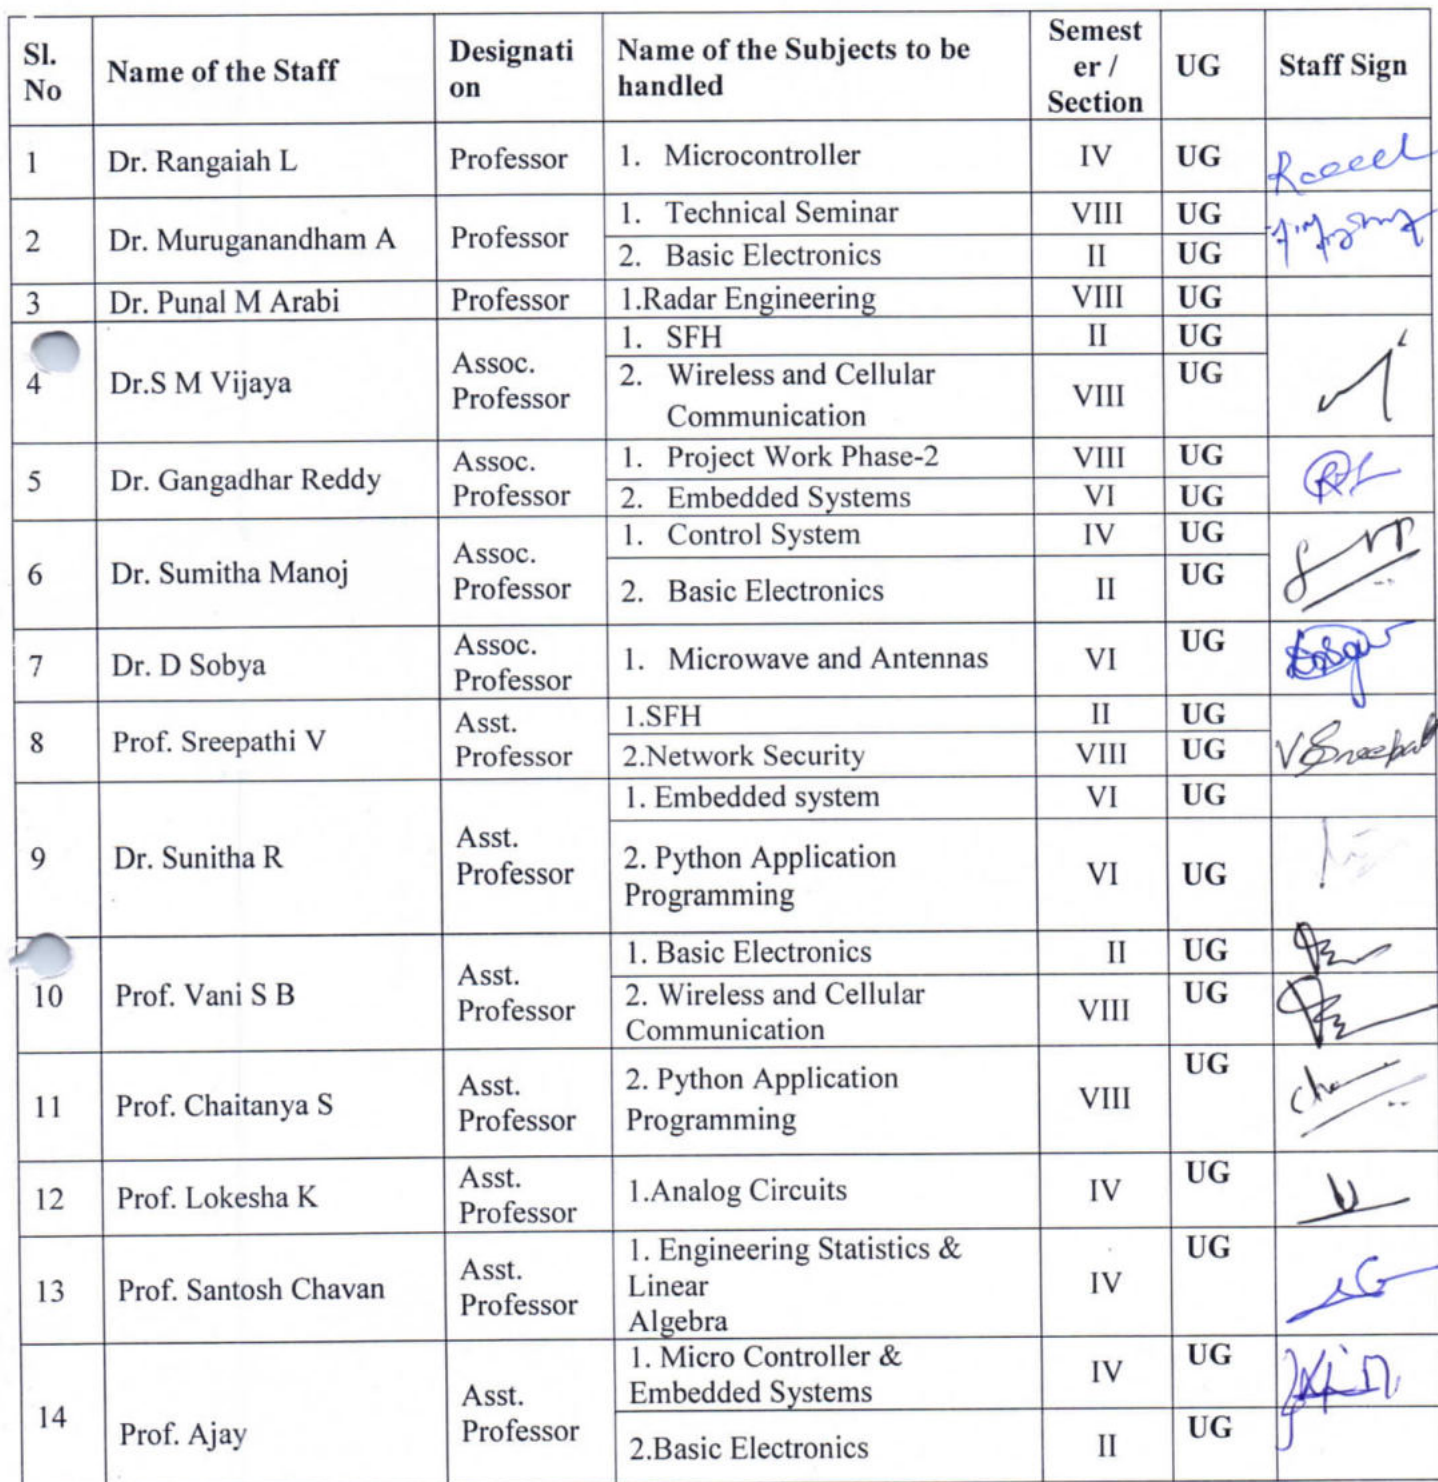 Sl. No | Name of the Staff | Designati on | Name of the Subjects to be handled | Semest er / Section | UG | Staff Sign
1 | Dr. Rangaiah L | Professor | 1. Microcontroller | IV | UG
2 | Dr. Muruganandham A | Professor | 1. Technical Seminar | VIII | UG
2. Basic Electronics | II | UG
3 | Dr. Punal M Arabi | Professor | 1.Radar Engineering | VIII | UG
4 | Dr.S M Vijaya | Assoc. Professor | 1. SFH | II | UG
2. Wireless and Cellular Communication | VIII | UG
5 | Dr. Gangadhar Reddy | Assoc. Professor | 1. Project Work Phase-2 | VIII | UG
2. Embedded Systems | VI | UG
6 | Dr. Sumitha Manoj | Assoc. Professor | 1. Control System | IV | UG
2. Basic Electronics | II | UG
7 | Dr. D Sobya | Assoc. Professor | 1. Microwave and Antennas | VI | UG
8 | Prof. Sreepathi V | Asst. Professor | 1.SFH | II | UG
2.Network Security | VIII | UG
9 | Dr. Sunitha R | Asst. Professor | 1. Embedded system | VI | UG
2. Python Application Programming | VI | UG
10 | Prof. Vani S B | Asst. Professor | 1. Basic Electronics | II | UG
2. Wireless and Cellular Communication | VIII | UG
11 | Prof. Chaitanya S | Asst. Professor | 2. Python Application Programming | VIII | UG
12 | Prof. Lokesha K | Asst. Professor | 1.Analog Circuits | IV | UG
13 | Prof. Santosh Chavan | Asst. Professor | 1. Engineering Statistics & Linear Algebra | IV | UG
14 | Prof. Ajay | Asst. Professor | 1. Micro Controller & Embedded Systems | IV | UG
2.Basic Electronics | II | UG